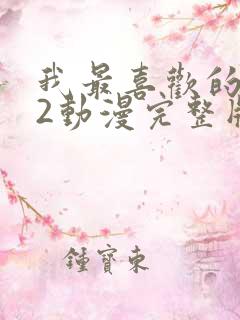 我最喜歡的
2動漫完整版
鍾寶東